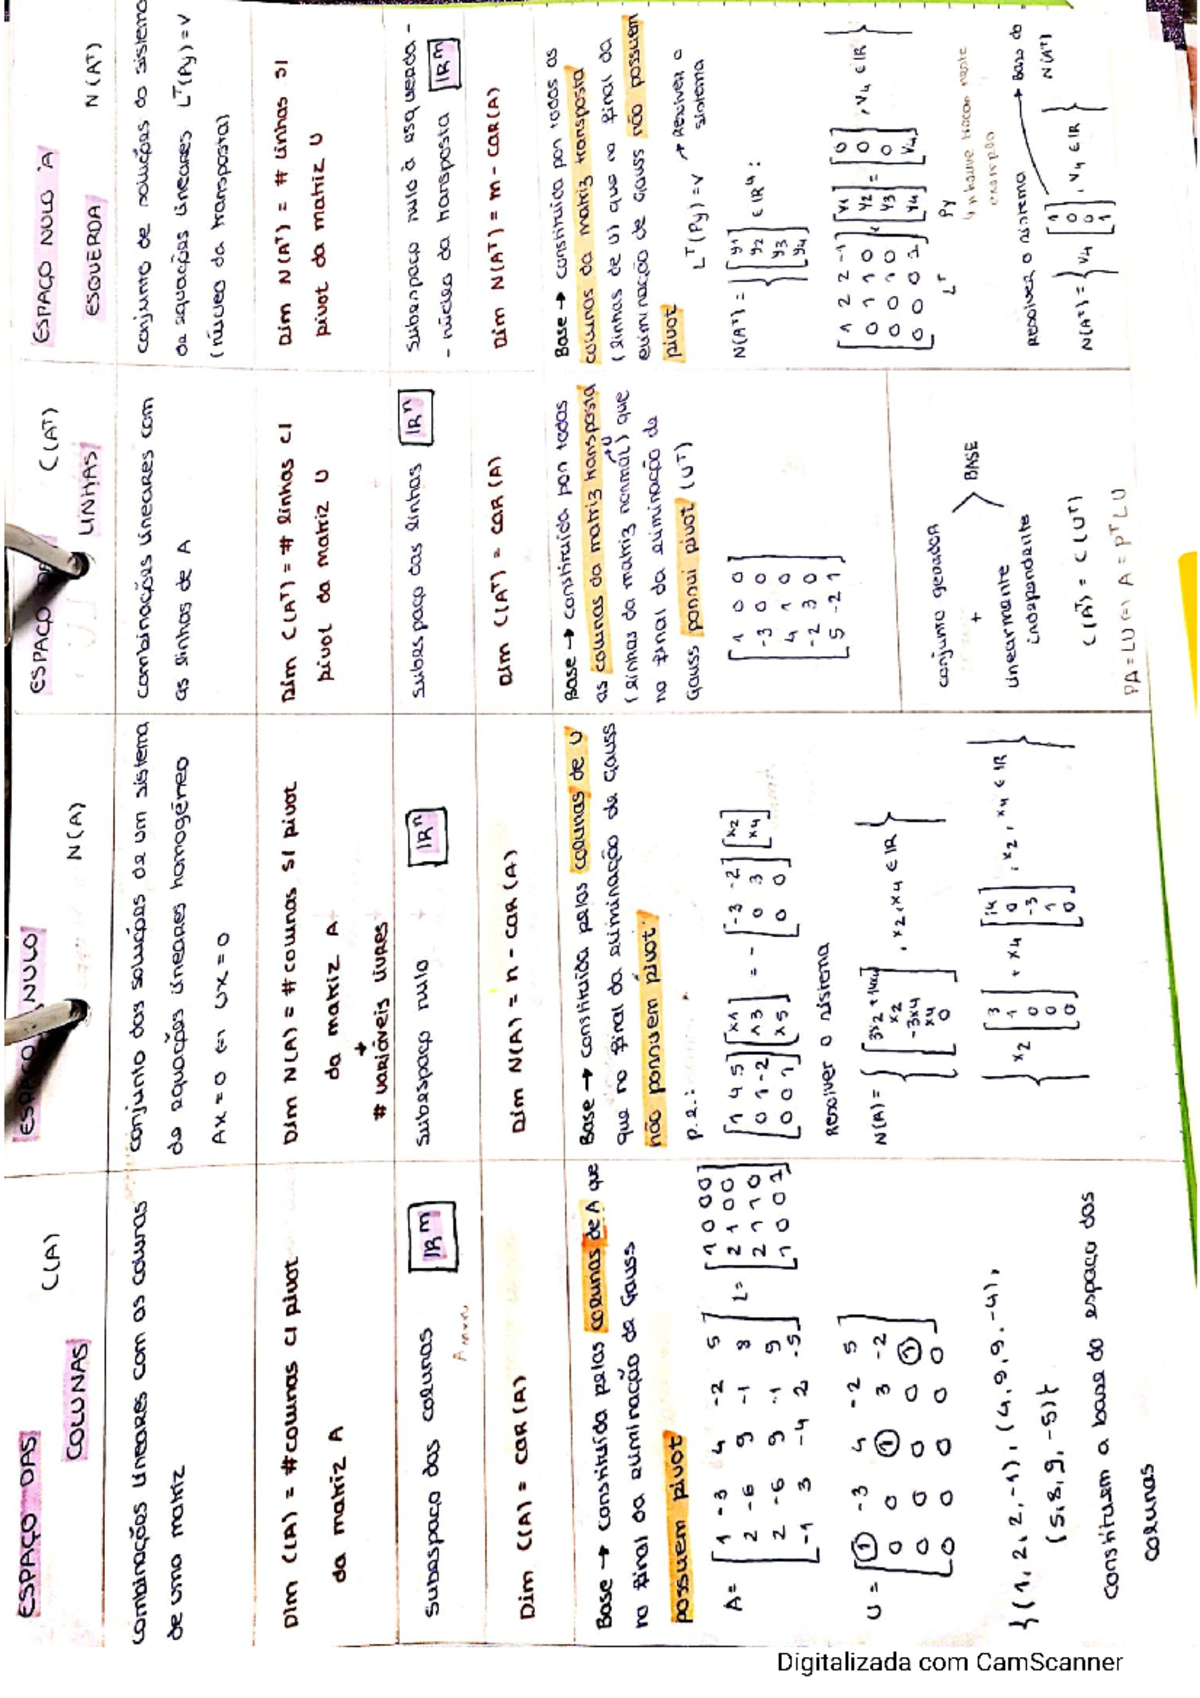 ESPAÇO DAS
COLUNAS
C(A)
Combinações lineares com as colunas
de uma matriz
Dim C(A) = # colunas c/ pivot
da matriz A
Subespaço das colunas
IR^m
Amxn
Dim C(A) = car(A)
Base → constituída pelas colunas de A que
no final da eliminação de Gauss
possuem pivot
A = [1 -3 4 -2 5
2 -6 9 -1 8
2 -6 9 -1 9
-1 3 -4 2 -5]
L = [1 0 0 0
2 1 0 0
2 1 1 0
-1 0 0 1]
U = [1 -3 4 -2 5
0 0 1 3 -2
0 0 0 0 1
0 0 0 0 0]
{(1, 2, 2, -1), (4, 9, 9, -4),
(5, 8, 9, -5)}
constituem a base do espaço das
colunas
ESPAÇO NULO
N(A)
conjunto das soluções de um sistema
de equações lineares homogéneo
Ax = 0 ⇔ Ux = 0
Dim N(A) = # colunas s/ pivot
da matriz A
# variáveis livres
Subespaço nulo
IR^n
Dim N(A) = n - car(A)
Base → constituída pelas colunas de U
que no final da eliminação de Gauss
não possuem pivot.
p.e.:
[1 4 5
0 1 -2
0 0 1] [x1
x3
x5] = - [-3 -2
0 3
0 0] [x2
x4]
Resolver o sistema
N(A) = { [3x2 + 14x4
x2
-3x4
x4
0] , x2, x4 ∈ IR }
{ x2 [3
1
0
0
0] + x4 [14
0
-3
1
0] , x2, x4 ∈ IR }
ESPAÇO DAS
LINHAS
C(A^T)
Combinações lineares com
as linhas de A
Dim C(A^T) = # linhas c/
pivot da matriz U
Subespaço das linhas
IR^n
Dim C(A^T) = car(A)
Base → constituída por todas
as colunas da matriz transposta
(linhas da matriz normal) que
U
no final da eliminação de
Gauss possui pivot (U^T)
[1 0 0
-3 0 0
4 1 0
-2 3 0
5 -2 1]
conjunto gerador
+
linearmente
independente
BASE
C(A^T) = C(U^T)
PA = LU ⇔ A = P^T LU
ESPAÇO NULO À
ESQUERDA
N(A^T)
conjunto de soluções do sistema
de equações lineares L^T(Py) = v
(núcleo da transposta)
Dim N(A^T) = # linhas s/
pivot da matriz U
Subespaço nulo à esquerda -
- núcleo da transposta
IR^m
Dim N(A^T) = m - car(A)
Base → constituída por todas as
colunas da matriz transposta
(linhas de U) que no final da
eliminação de Gauss não possuem
pivot
L^T(Py) = v → Resolver o
sistema
N(A^T) = { [y1
y2
y3
y4] ∈ IR^4 :
[1 2 2 -1
0 1 1 0
0 0 1 0
0 0 0 1] [y1
y2
y3
y4] = [0
0
0
v4] , v4 ∈ IR }
L^T
Py
↳ ñ houve trocas neste
exemplo
Resolver o sistema
N(A^T) = { v4 [1
0
0
1] , v4 ∈ IR }
→ Base do
N(A^T)
Digitalizada com CamScanner